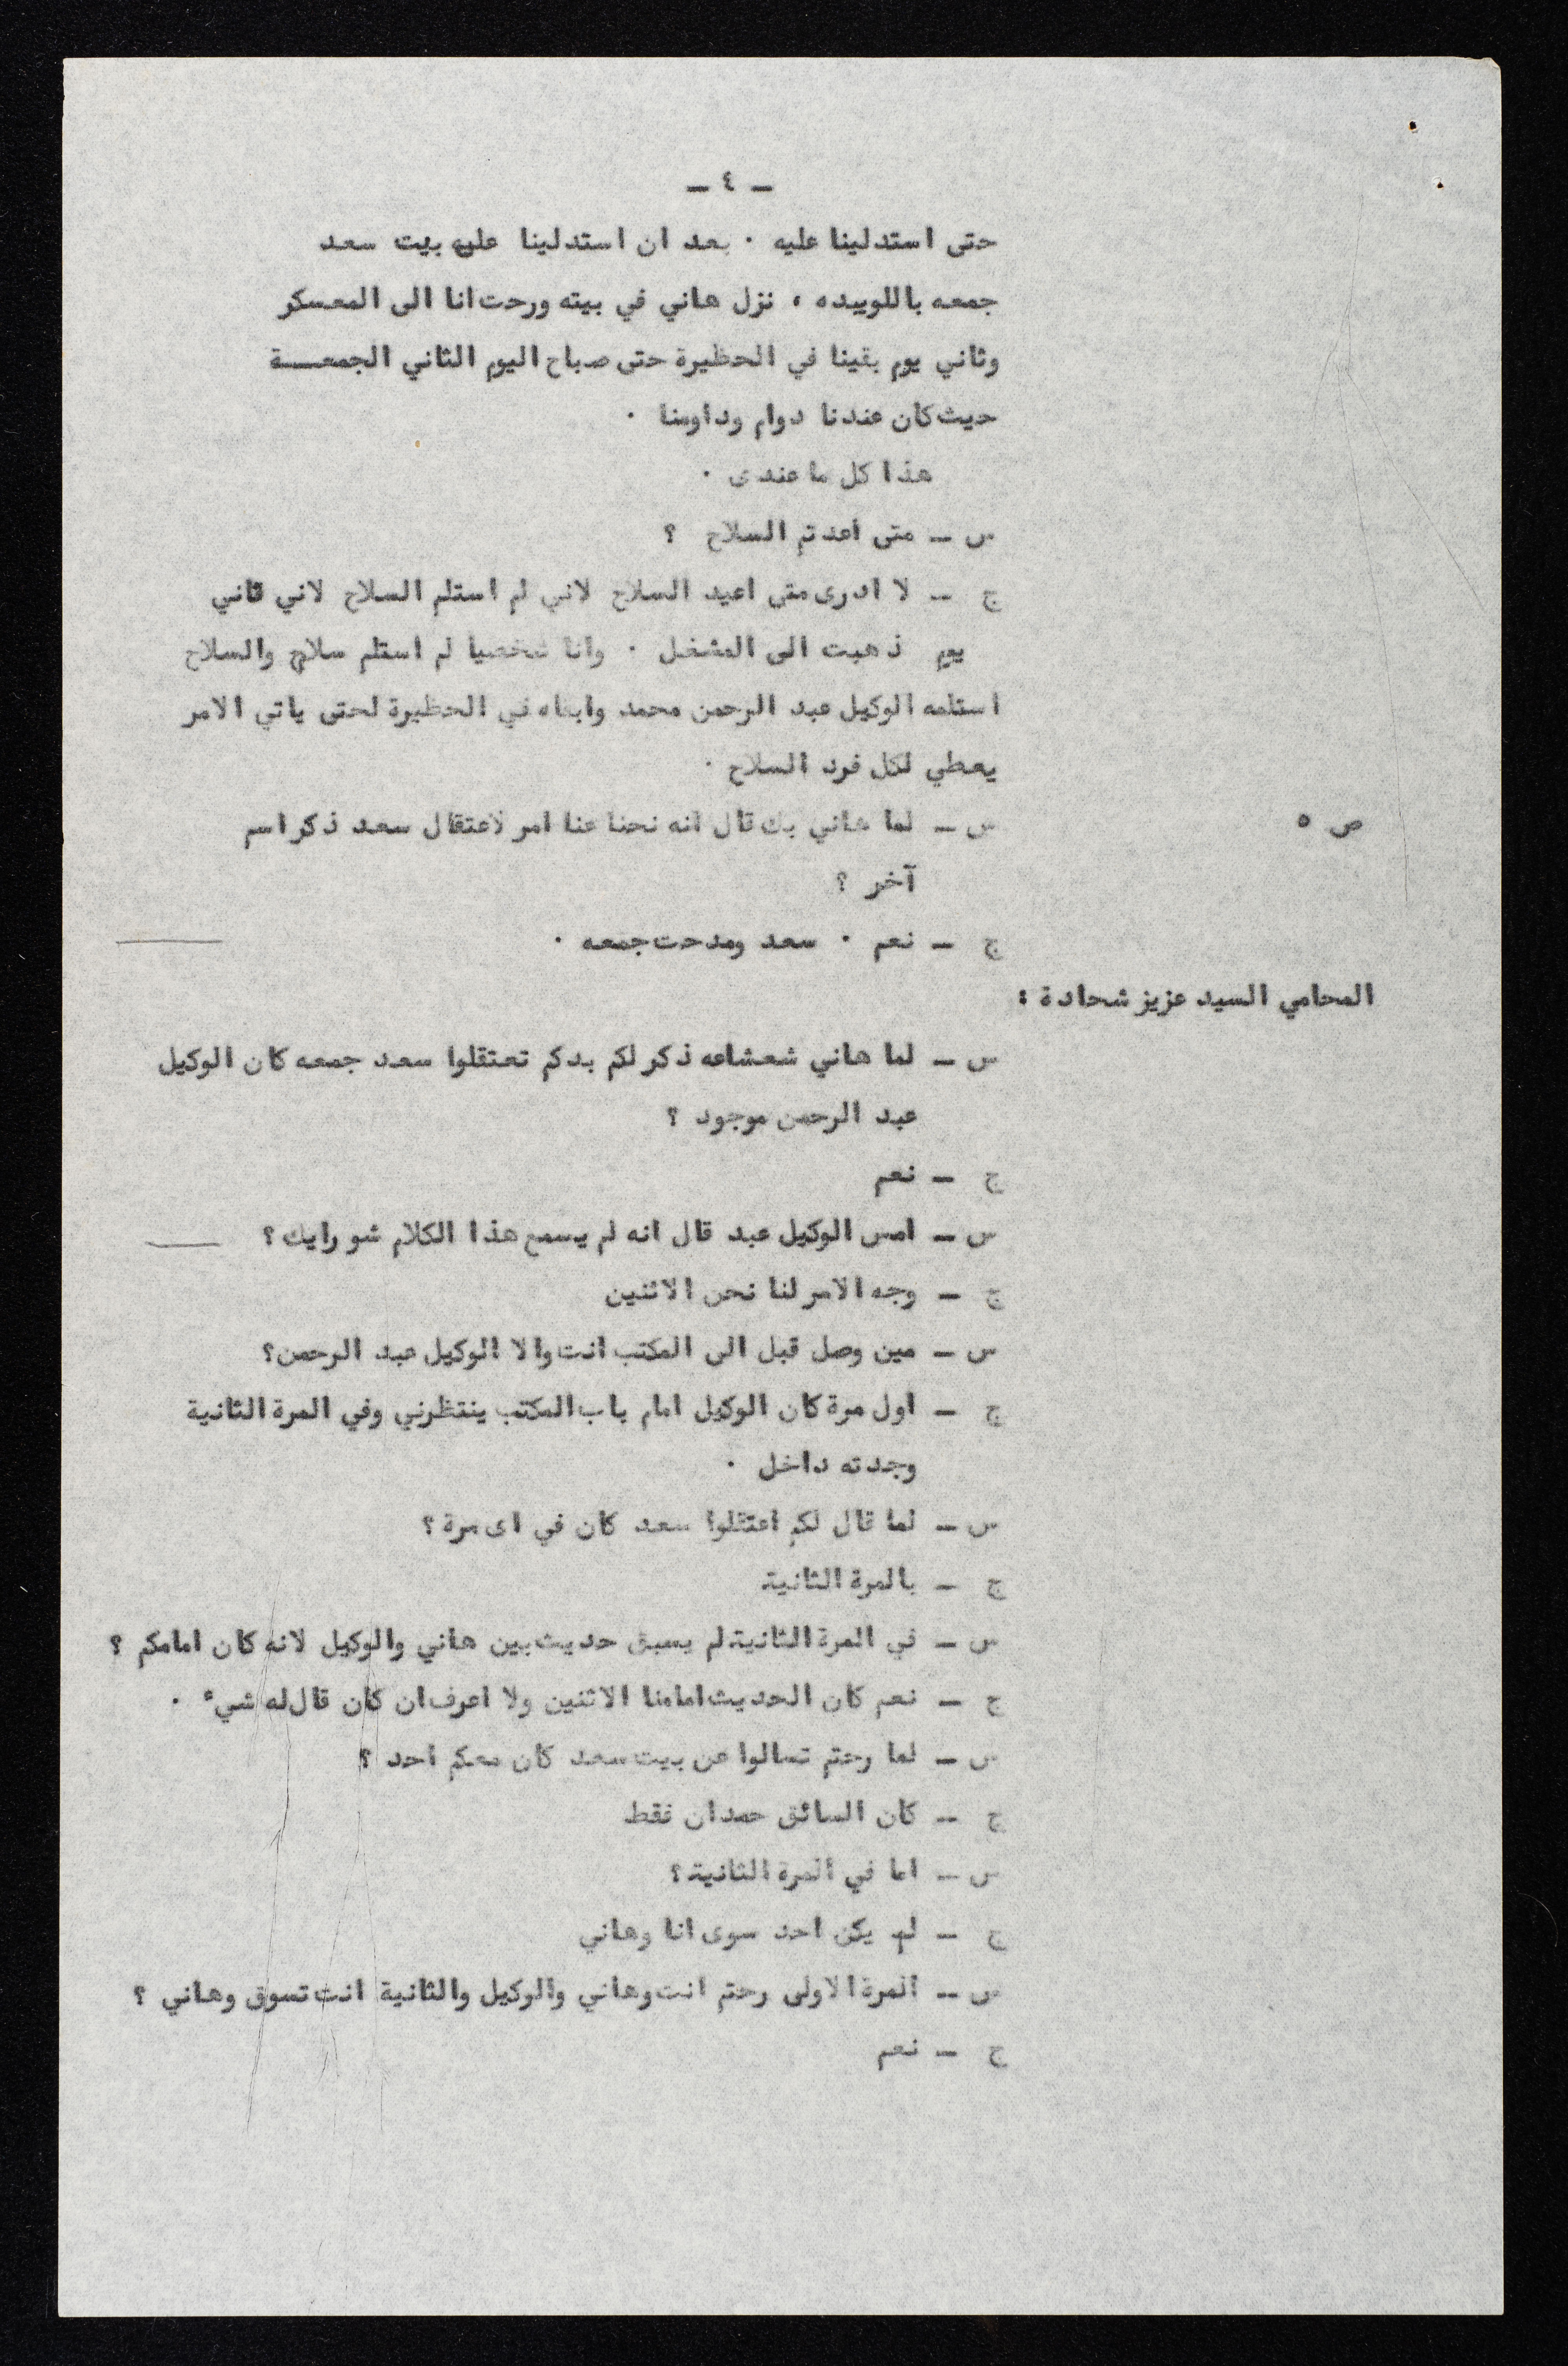 ـ ٤ ـ
حتى استدلينا عليه ٠ بعد ان استدلينا على بيت سعد
جمعه باللويبده ، نزل هاني في بيته ورحت انا الى المعسكر
وثاني يوم بقينا في الحظيرة حتى صباح اليوم الثاني الجمعـــة
حيث كان عندنا دوام وداومنا ٠
هذا كل ما عندى ٠
س ـ متى اعدتم السلاح ؟
ج ـ لا ادرى متى اعيد السلاح لاني لم استلم السلاح لاني ثاني
يوم ذهبت الى المشغل ٠ وانا شخصيا لم استلم سلاح والسلاح
استلمه الوكيل عبد الرحمن محمد وابقاه في الحظيرة لحتى ياتي الامر
يعطي لكل فرد السلاح ٠
ص ٥ س ـ لما هاني بك قال انه نحنا عنا امر لاعتقال سعد ذكر اسم
آخر ؟
ج ـ نعم ٠ سعد ومدحت جمعه ٠
المحامي السيد عزيز شحادة :
س ـ لما هاني شعشاعه ذكر لكم بدكم تعتقلوا سعد جمعه كان الوكيل
عبد الرحمن موجود ؟
ج ـ نعم
س ـ امس الوكيل عبد قال انه لم يسمع هذا الكلام شو رايك ؟
ج ـ وجه الامر لنا نحن الاثنين
س ـ مين وصل قبل الى المكتب انت والا الوكيل عبد الرحمن؟
ج ـ اول مرة كان الوكيل امام باب المكتب ينتظرني وفي المرة الثانية
وجدته داخل ٠
س ـ لما قال لكم اعتقلوا سعد كان في اى مرة ؟
ج ـ بالمرة الثانية
س ـ في المرة الثانية لم يسبق حديث بين هاني والوكيل لانه كان امامكم ؟
ج ـ نعم كان الحديث امامنا الاثنين ولا اعرف ان كان قال له شيء ٠
س ـ لما رحتم تسالوا عن بيت سعد كان معكم احد ؟
ج ـ كان السائق حمدان فقط
س ـ اما في المرة الثانية ؟
ج ـ لم يكن احد سوى انا وهاني
س ـ المرة الاولى رحتم انت وهاني والوكيل والثانية انت تسوق وهاني ؟
ج ـ نعم